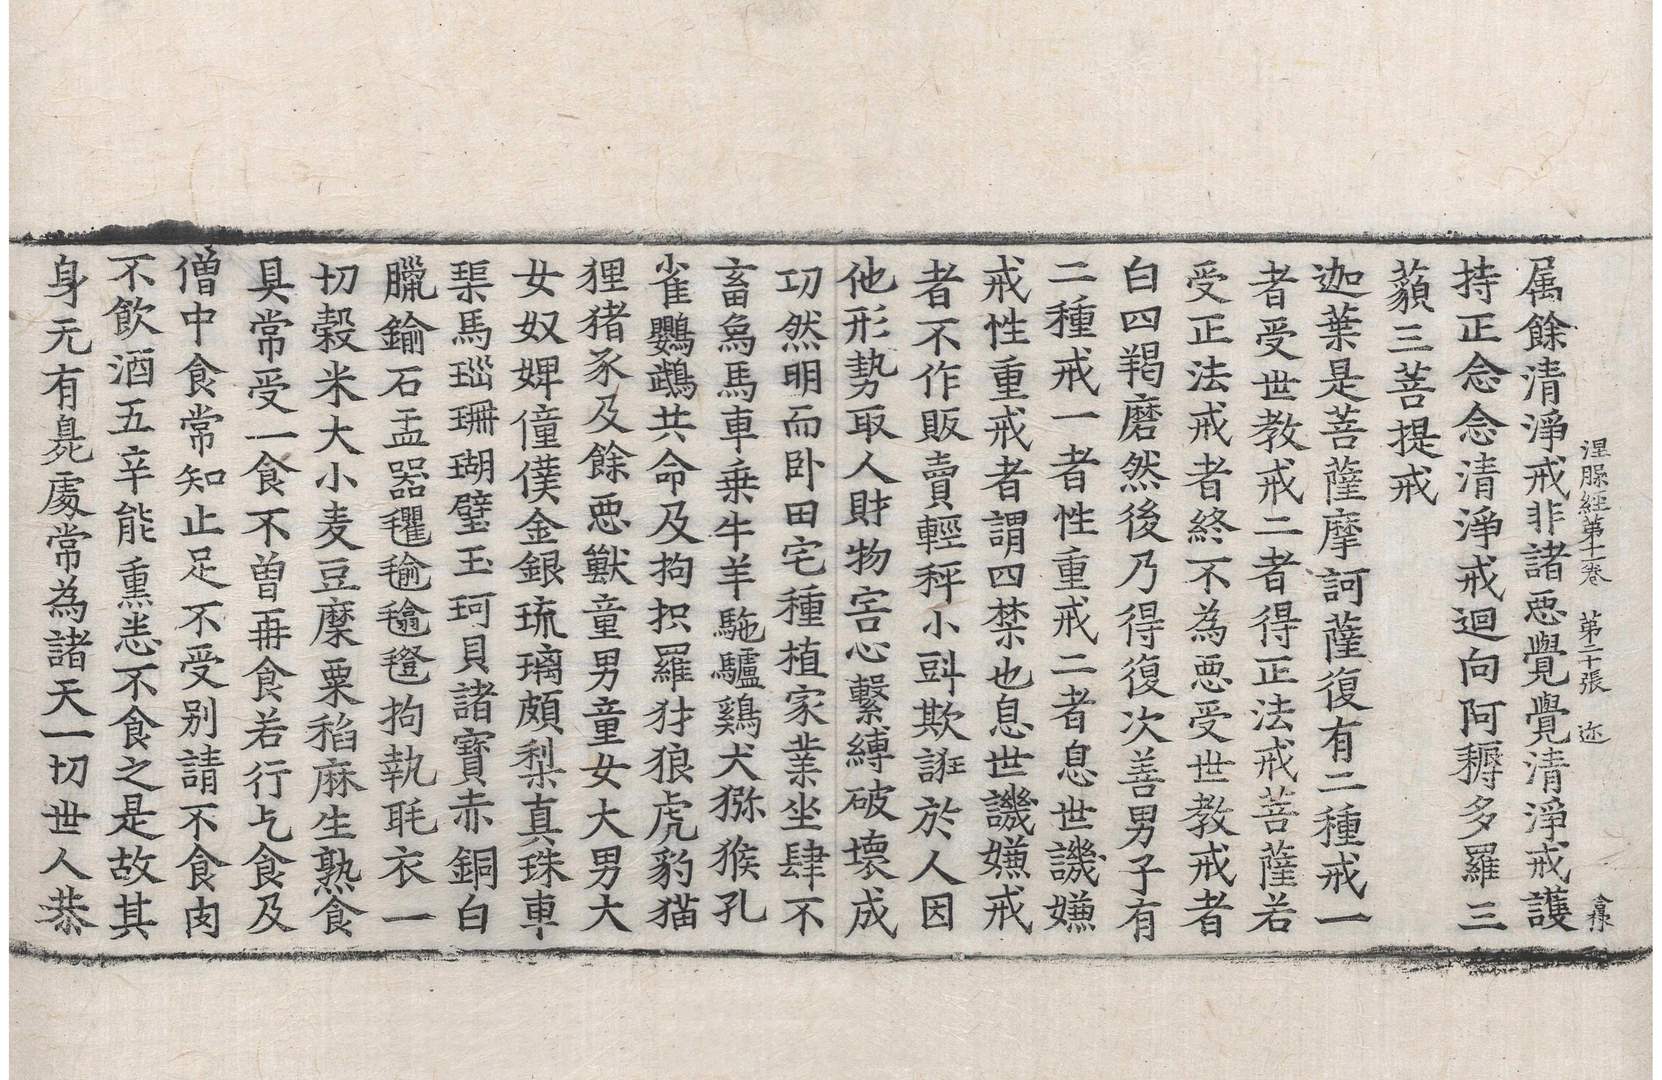 涅槃經第十一卷　第二十張　迩
屬餘清淨戒非諸惡覺覺清淨戒護
持正念念清淨戒迴向阿耨多羅三
藐三菩提戒
迦葉是菩薩摩訶薩復有二種戒一
者受世教戒二者得正法戒菩薩若
受正法戒者終不為惡受世教戒者
白四羯磨然後乃得復次善男子有
二種戒一者性重戒二者息世譏嫌
戒性重戒者謂四禁也息世譏嫌戒
者不作販賣輕秤小㪷欺誑於人因
他形勢取人財物害心繫縛破壞成
功然明而卧田宅種植家業坐肆不
畜象馬車乗牛羊駞驢鷄犬猕猴孔
雀鸚鵡共命及拘抧羅犲狼虎豹猫
狸猪豕及餘惡獸童男童女大男大
女奴婢僮僕金銀琉璃頗梨真珠車
渠馬瑙珊瑚璧玉珂貝諸寶赤銅白
鑞鍮石盂器氍毹毾㲪拘執毦衣一
切穀米大小麦豆穈粟稻麻生熟食
具常受一食不曾再食若行乞食及
僧中食常知止足不受別請不食肉
不飲酒五辛能熏悉不食之是故其
身无有臭處常為諸天一切世人恭